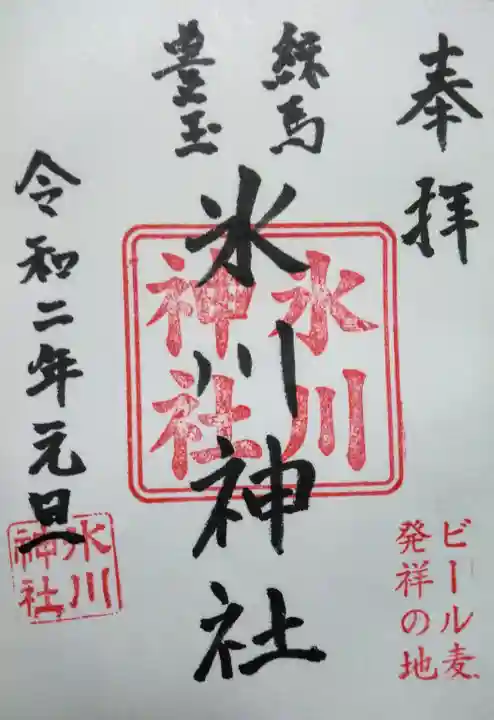 奉拝
練馬
豊玉
氷川神社
氷川
神社
令和二年元旦
氷川
神社
ビール麦
発祥の地